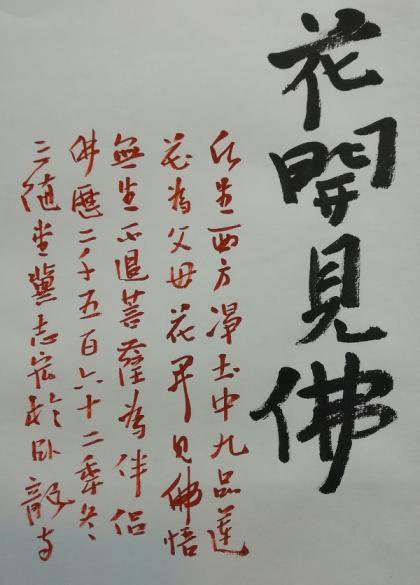 花開見佛
願生西方淨土中九品蓮
花為父母花开見佛悟
無生不退菩薩為伴侶
佛歷二千五百六十二季冬
三随堂冀志宏於卧龍寺